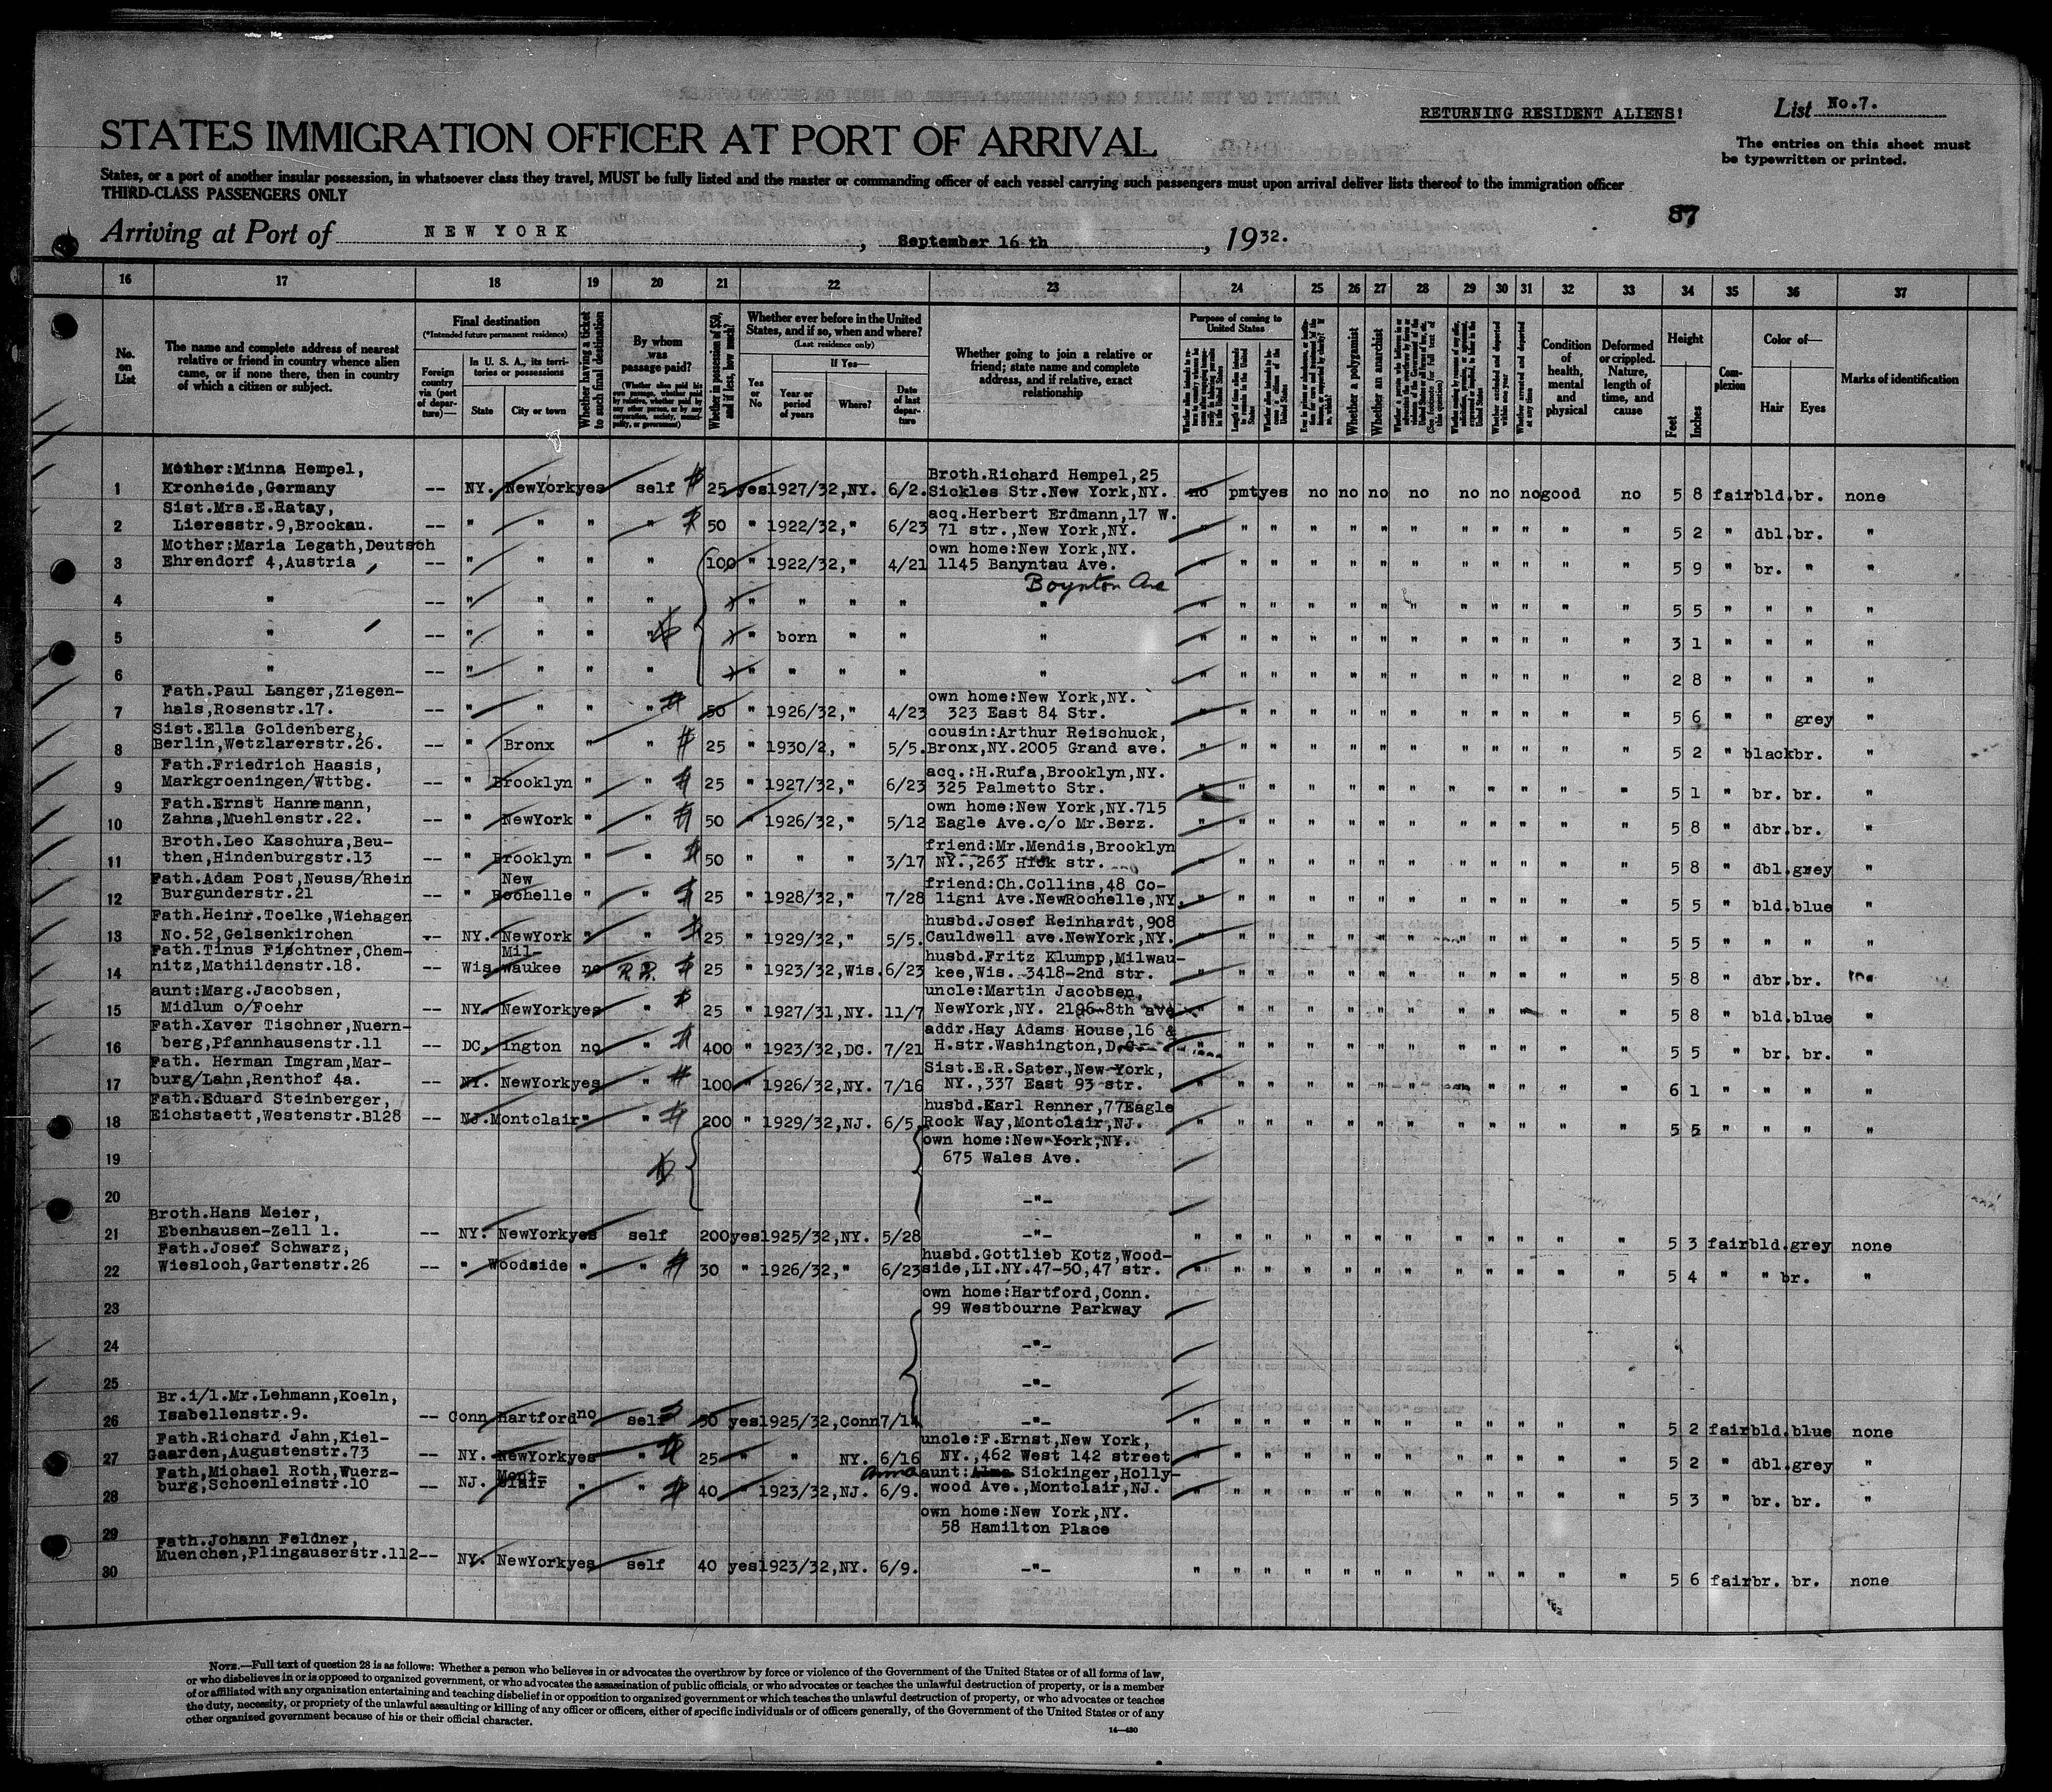 RETURNING RESIDENT ALIENS!
List No.7.
STATES IMMIGRATION OFFICER AT PORT OF ARRIVAL
The entries on this sheet must
be typewritten or printed.
States, or a port of another insular possession, in whatsoever class they travel, MUST be fully listed and the master or commanding officer of each vessel carrying such passengers must upon arrival deliver lists thereof to the immigration officer
THIRD-CLASS PASSENGERS ONLY
87
Arriving at Port of NEW YORK, September 16 th, 1932.
16 17 18 19 20 21 22 23 24 25 26 27 28 29 30 31 32 33 34 35 36 37
No. on List
The name and complete address of nearest
relative or friend in country whence alien
came, or if none there, then in country
of which a citizen or subject.
Final destination
(*Intended future permanent residence)
Foreign country via (port of departure)—
In U. S. A., its territories or possessions
State
City or town
Whether having a ticket to such final destination
By whom was passage paid?
(Whether alien paid his own passage, whether paid by relative, whether paid by any other person, or by any corporation, society, municipality, or government)
Whether in possession of $50, and if less, how much?
Whether ever before in the United
States, and if so, when and where?
(Last residence only)
Yes or No
If Yes—
Year or period of years
Where?
Date of last departure
Whether going to join a relative or
friend; state name and complete
address, and if relative, exact
relationship
Purpose of coming to United States
Length of time alien intends to remain in the United States
Whether alien intends to become a citizen of the United States
Whether a polygamist
Whether an anarchist
Whether excluded and deported within one year
Whether arrested and deported at any time
Condition of health, mental and physical
Deformed or crippled. Nature, length of time, and cause
Height
Feet
Inches
Complexion
Color of—
Hair
Eyes
Marks of identification
Mother:Minna Hempel, Broth.Richard Hempel,25
1 Kronheide,Germany -- NY. NewYork yes self 25 yes 1927/32,NY. 6/2. Sickles Str.New York,NY. no pmt yes no no no no no no no good no 5 8 fair bld. br. none
Sist.Mrs.E.Ratay, acq.Herbert Erdmann,17 W.
2 Lieresstr.9,Brockau. -- " " " " 50 " 1922/32," 6/23 71 str.,New York,NY. " " " " " " " " " " " " 5 2 " dbl. br. "
Mother:Maria Legath,Deutsch own home:New York,NY.
3 Ehrendorf 4,Austria -- " " " " 100 " 1922/32," 4/21 1145 Banyntau Ave. " " " " " " " " " " " " 5 9 " br. " "
Boynton Ave
4 " -- " " " " " " " " " " " " " " " " " " " " " 5 5 " " " "
5 " -- " " " " " born " " " " " " " " " " " " " " " 3 1 " " " "
6 " -- " " " " " " " " " " " " " " " " " " " " " 2 8 " " " "
Fath.Paul Langer,Ziegen- own home:New York,NY.
7 hals,Rosenstr.17. -- " " " " 50 " 1926/32," 4/23 323 East 84 Str. " " " " " " " " " " " " 5 6 " " grey "
Sist.Ella Goldenberg, cousin:Arthur Reischuck,
8 Berlin,Wetzlarerstr.26. -- " Bronx " " 25 " 1930/2, " 5/5. Bronx,NY.2005 Grand ave. " " " " " " " " " " " " 5 2 " black br. "
Fath.Friedrich Haasis, acq.:H.Rufa,Brooklyn,NY.
9 Markgroeningen/Wttbg. -- " Brooklyn " " 25 " 1927/32," 6/23 325 Palmetto Str. " " " " " " " " " " " " 5 1 " br. br. "
Fath.Ernst Hannemann, own home:New York,NY.715
10 Zahna,Muehlenstr.22. -- " NewYork " " 50 " 1926/32," 5/12 Eagle Ave.c/o Mr.Berz. " " " " " " " " " " " " 5 8 " dbr. br. "
Broth.Leo Kaschura,Beu- friend:Mr.Mendis,Brooklyn
11 then,Hindenburgstr.13 -- " Brooklyn " " 50 " " " 3/17 NY.,263 Hick str. " " " " " " " " " " " " 5 8 " dbl. grey "
Fath.Adam Post,Neuss/Rhein New friend:Ch.Collins,48 Co-
12 Burgunderstr.21 -- " Rochelle " " 25 " 1928/32," 7/28 ligni Ave.NewRochelle,NY. " " " " " " " " " " " " 5 5 " bld. blue "
Fath.Heinr.Toelke,Wiehagen husbd.Josef Reinhardt,908
13 No.52,Gelsenkirchen -- NY. NewYork " " 25 " 1929/32," 5/5. Cauldwell ave.NewYork,NY. " " " " " " " " " " " " 5 5 " " " "
Fath.Tinus Fischtner,Chem- Mil- husbd.Fritz Klumpp,Milwau-
14 nitz,Mathildenstr.18. -- Wis waukee no 25 " 1923/32,Wis. 6/23 kee,Wis. 3418-2nd str. " " " " " " " " " " " " 5 8 " dbr. br. "
aunt:Marg.Jacobsen, uncle:Martin Jacobsen,
15 Midlum o/Foehr -- NY. NewYork yes " 25 " 1927/31,NY. 11/7 NewYork,NY. 2196-8th ave " " " " " " " " " " " " 5 8 " bld. blue "
Fath.Xaver Tischner,Nuern- addr.Hay Adams House,16 &
16 berg,Pfannhausenstr.11 -- DC, ington no " 400 " 1923/32,DC. 7/21 H.str.Washington,D.C. " " " " " " " " " " " " 5 5 " br. br. "
Fath. Herman Imgram,Mar- Sist.E.R.Sater,New York,
17 burg/Lahn,Renthof 4a. -- NY. NewYork yes " 100 " 1926/32,NY. 7/16 NY.,337 East 93 str. " " " " " " " " " " " " 6 1 " " " "
Fath.Eduard Steinberger, husbd.Karl Renner,77Eagle
18 Eichstaett,Westenstr.B128 -- NJ. Montclair " " 200 " 1929/32,NJ. 6/5. Rock Way,Montclair,NJ. " " " " " " " " " " " " 5 5 " " " "
own home:New York,NY.
19 675 Wales Ave.
20 -"-
Broth.Hans Meier,
21 Ebenhausen-Zell 1. -- NY. NewYork yes self 200 yes 1925/32,NY. 5/28 -"- " " " " " " " " " " " " 5 3 fair bld. grey none
Fath.Josef Schwarz, husbd.Gottlieb Kotz,Wood-
22 Wiesloch,Gartenstr.26 -- " Woodside " " 30 " 1926/32," 6/23 side,LI.NY.47-50,47 str. " " " " " " " " " " " " 5 4 " " br. "
own home:Hartford,Conn.
23 99 Westbourne Parkway
24 -"-
25 -"-
Br.i/l.Mr.Lehmann,Koeln,
26 Isabellenstr.9. -- Conn Hartford no self 50 yes 1925/32,Conn 7/14 -"- " " " " " " " " " " " " 5 2 fair bld. blue none
Fath.Richard Jahn,Kiel- uncle:F.Ernst,New York,
27 Gaarden,Augustenstr.73 -- NY. NewYork yes " 25 " " NY. 6/16 NY.,462 West 142 street " " " " " " " " " " " " 5 2 " dbl. grey "
Fath,Michael Roth,Wuerz- Mont- Anna aunt:Alma Sickinger,Holly-
28 burg,Schoenleinstr.10 -- NJ. clair " " 40 " 1923/32,NJ. 6/9. wood Ave.,Montclair,NJ. " " " " " " " " " " " " 5 3 " br. br. "
own home:New York,NY.
29 58 Hamilton Place
Fath.Johann Feldner,
30 Muenchen,Plingauserstr.112-- NY. NewYork yes self 40 yes 1923/32,NY. 6/9. -"- " " " " " " " " " " " " 5 6 fair br. br. none
NOTE.—Full text of question 28 is as follows: Whether a person who believes in or advocates the overthrow by force or violence of the Government of the United States or of all forms of law,
or who disbelieves in or is opposed to organized government, or who advocates the assassination of public officials, or who advocates or teaches the unlawful destruction of property, or is a member
of or affiliated with any organization entertaining and teaching disbelief in or opposition to organized government or which teaches the unlawful destruction of property, or who advocates or teaches
the duty, necessity, or propriety of the unlawful assaulting or killing of any officer or officers, either of specific individuals or of officers generally, of the Government of the United States or of any
other organized government because of his or their official character.
14—430